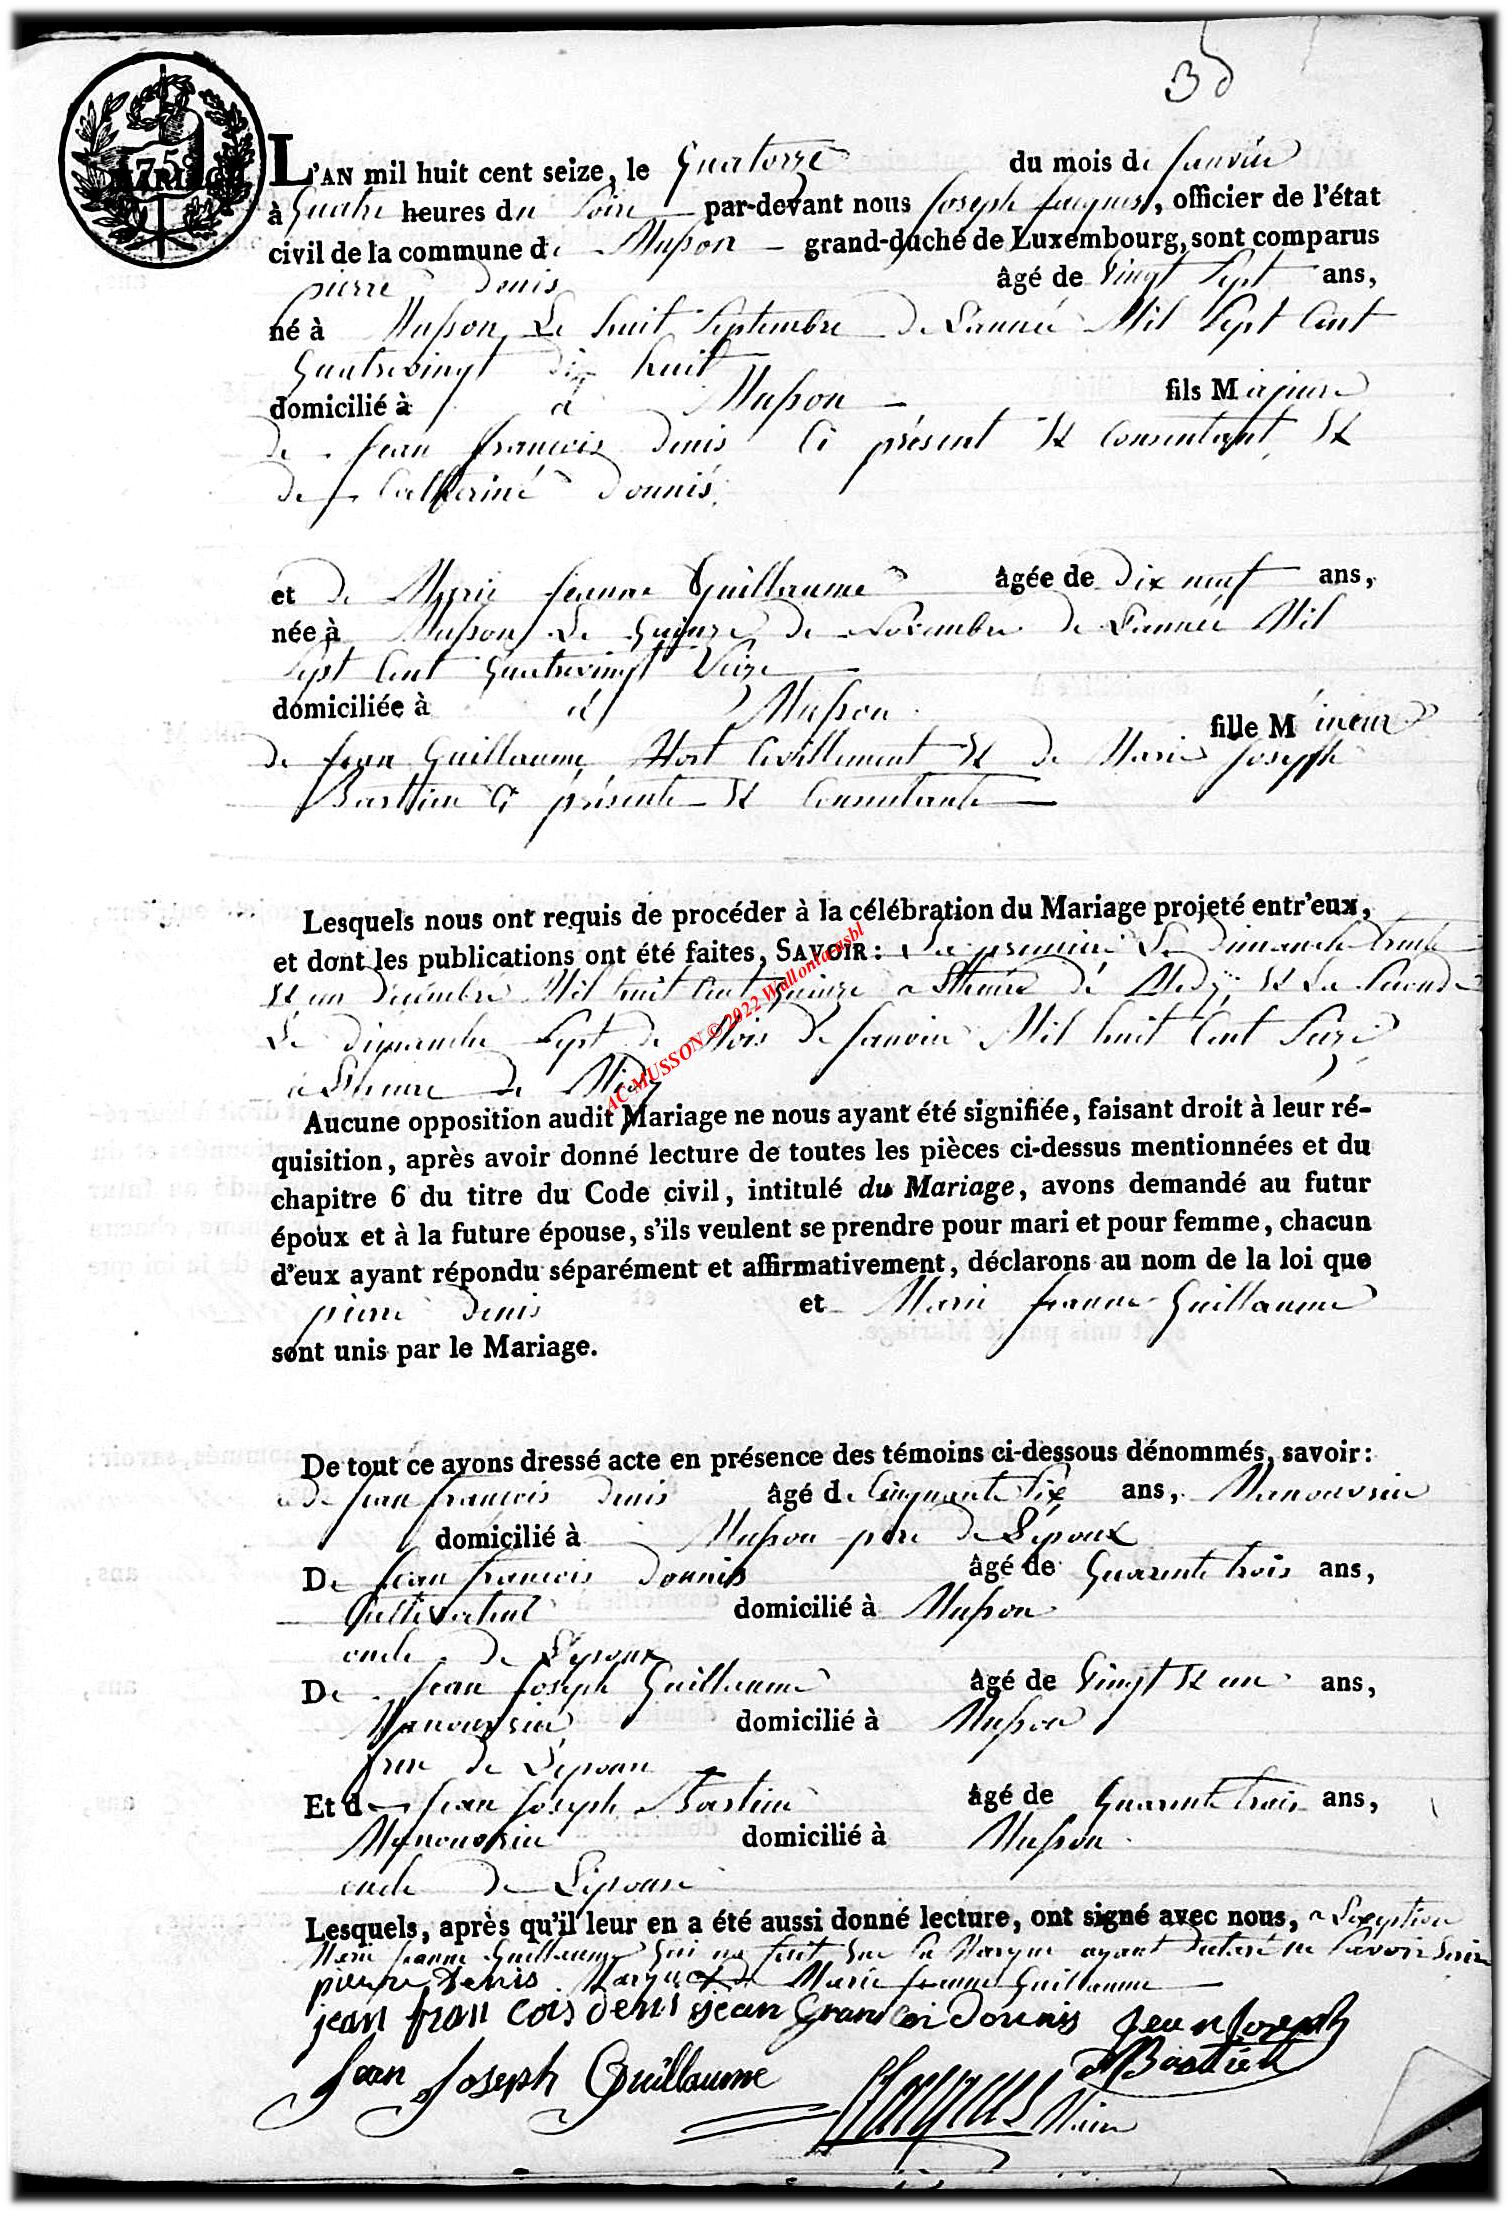 30
175
L'AN mil huit cent seize, le Quatorze du mois de Janvier
à Quatre heures du Soire par-devant nous Joseph Jacques, officier de l'état
civil de la commune de Musson grand-duché de Luxembourg, sont comparus
pierre denis âgé de Vingt Sept ans,
né à Musson Le huit Septembre De L'année Mil Sept Cent
Quatrevingt dix huit
domicilié à à Musson fils Majeure
de Jean françois denis Ci présent Et Consentant Et
de Catherine donnis
et De Marie Jeanne Guillaume âgée de dix neuf ans,
née à Musson Le Quinze De Novembre De L'année Mil
Sept Cent Quatrevingt Seize
domiciliée à à Musson fille Mineur
de Jean Guillaume Mort Civillement Et De Marie Joseph
Bastien Ci présente Et Consentante
Lesquels nous ont requis de procéder à la célébration du Mariage projeté entr'eux,
et dont les publications ont été faites, SAVOIR : La premiere Le Dimanche trente
Et un Décembre Mil huit Cent Quinze a Lheure de Medy Et La Seconde
Le dimanche Sept de Mois De Janvier Mil huit Cent Seize
à Lheure De Midy
AC MUSSON © 2022 Wallonia asbl
Aucune opposition audit Mariage ne nous ayant été signifiée, faisant droit à leur ré-
quisition, après avoir donné lecture de toutes les pièces ci-dessus mentionnées et du
chapitre 6 du titre du Code civil, intitulé du Mariage, avons demandé au futur
époux et à la future épouse, s'ils veulent se prendre pour mari et pour femme, chacun
d'eux ayant répondu séparément et affirmativement, déclarons au nom de la loi que
pierre denis et Marie Jeanne Guillaume
sont unis par le Mariage.
De tout ce avons dressé acte en présence des témoins ci-dessous dénommés, savoir :
de Jean françois denis âgé de Cinquante Six ans, Manouvrier
domicilié à Musson pere De L'époux
De Jean françois donnis âgé de Quarente trois ans,
Cultivateur domicilié à Musson
oncle De L'époux
De Jean Joseph Guillaume âgé de Vingt Et un ans,
Manouvrier domicilié à Musson
frere de L'épouse
Et de Jean Joseph Bastien âgé de Quarente trois ans,
Manouvrier domicilié à Musson
oncle De L'épouse
Lesquels, après qu'il leur en a été aussi donné lecture, ont signé avec nous, a Lexeption
Marie Jeanne Guillaume Qui na fait Que Sa Marque ayant declaré ne Savoir Ecrire
pierre Denis Marque De Marie Jeanne Guillaume
jean fran cois denis jean francoi donnis Jean Joseph
Jean Joseph Guillaume Bastien
Jacques Maire